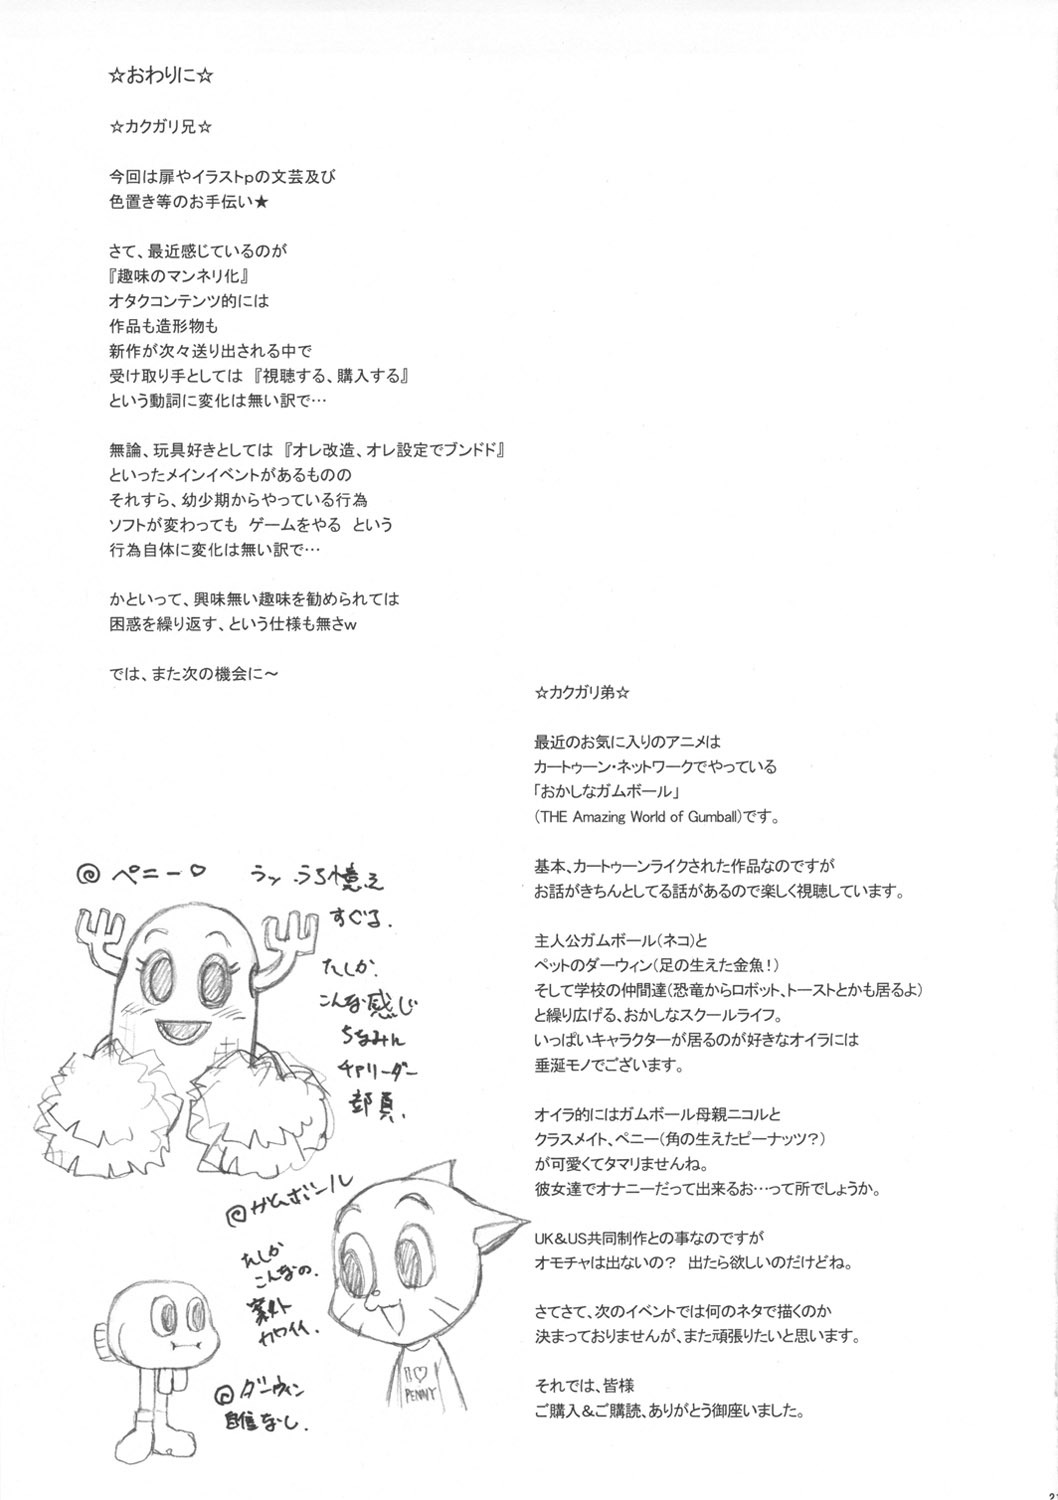 ☆おわりに☆
☆カクガリ兄☆
今回は扉やイラストpの文芸及び
色置き等のお手伝い★
さて、最近感じているのが
『趣味のマンネリ化』
オタクコンテンツ的には
作品も造形物も
新作が次々送り出される中で
受け取り手としては 『視聴する、購入する』
という動詞に変化は無い訳で…
無論、玩具好きとしては 『オレ改造、オレ設定でブンドド』
といったメインイベントがあるものの
それすら、幼少期からやっている行為
ソフトが変わっても ゲームをやる という
行為自体に変化は無い訳で…
かといって、興味無い趣味を勧められては
困惑を繰り返す、という仕様も無さw
では、また次の機会に～
☆カクガリ弟☆
最近のお気に入りのアニメは
カートゥーン・ネットワークでやっている
「おかしなガムボール」
(THE Amazing World of Gumball)です。
基本、カートゥーンライクされた作品なのですが
お話がきちんとしてる話があるので楽しく視聴しています。
主人公ガムボール(ネコ)と
ペットのダーウィン(足の生えた金魚!)
そして学校の仲間達(恐竜からロボット、トーストとかも居るよ)
と繰り広げる、おかしなスクールライフ。
いっぱいキャラクターが居るのが好きなオイラには
垂涎モノでございます。
オイラ的にはガムボール母親ニコルと
クラスメイト、ペニー(角の生えたピーナッツ?)
が可愛くてタマリませんね。
彼女達でオナニーだって出来るお…って所でしょうか。
UK&US共同制作との事なのですが
オモチャは出ないの? 出たら欲しいのだけどね。
さてさて、次のイベントでは何のネタで描くのか
決まっておりませんが、また頑張りたいと思います。
それでは、皆様
ご購入&ご購読、ありがとう御座いました。
@ペニー♡
うろ憶え
すぐる.
たしか.
こんな感じ
ちなみん
チアリーダー
部員.
@ガムボール
たしか
こんなの.
案外
カワイイ.
I♡
PENNY
@ダーウィン
自信なし.